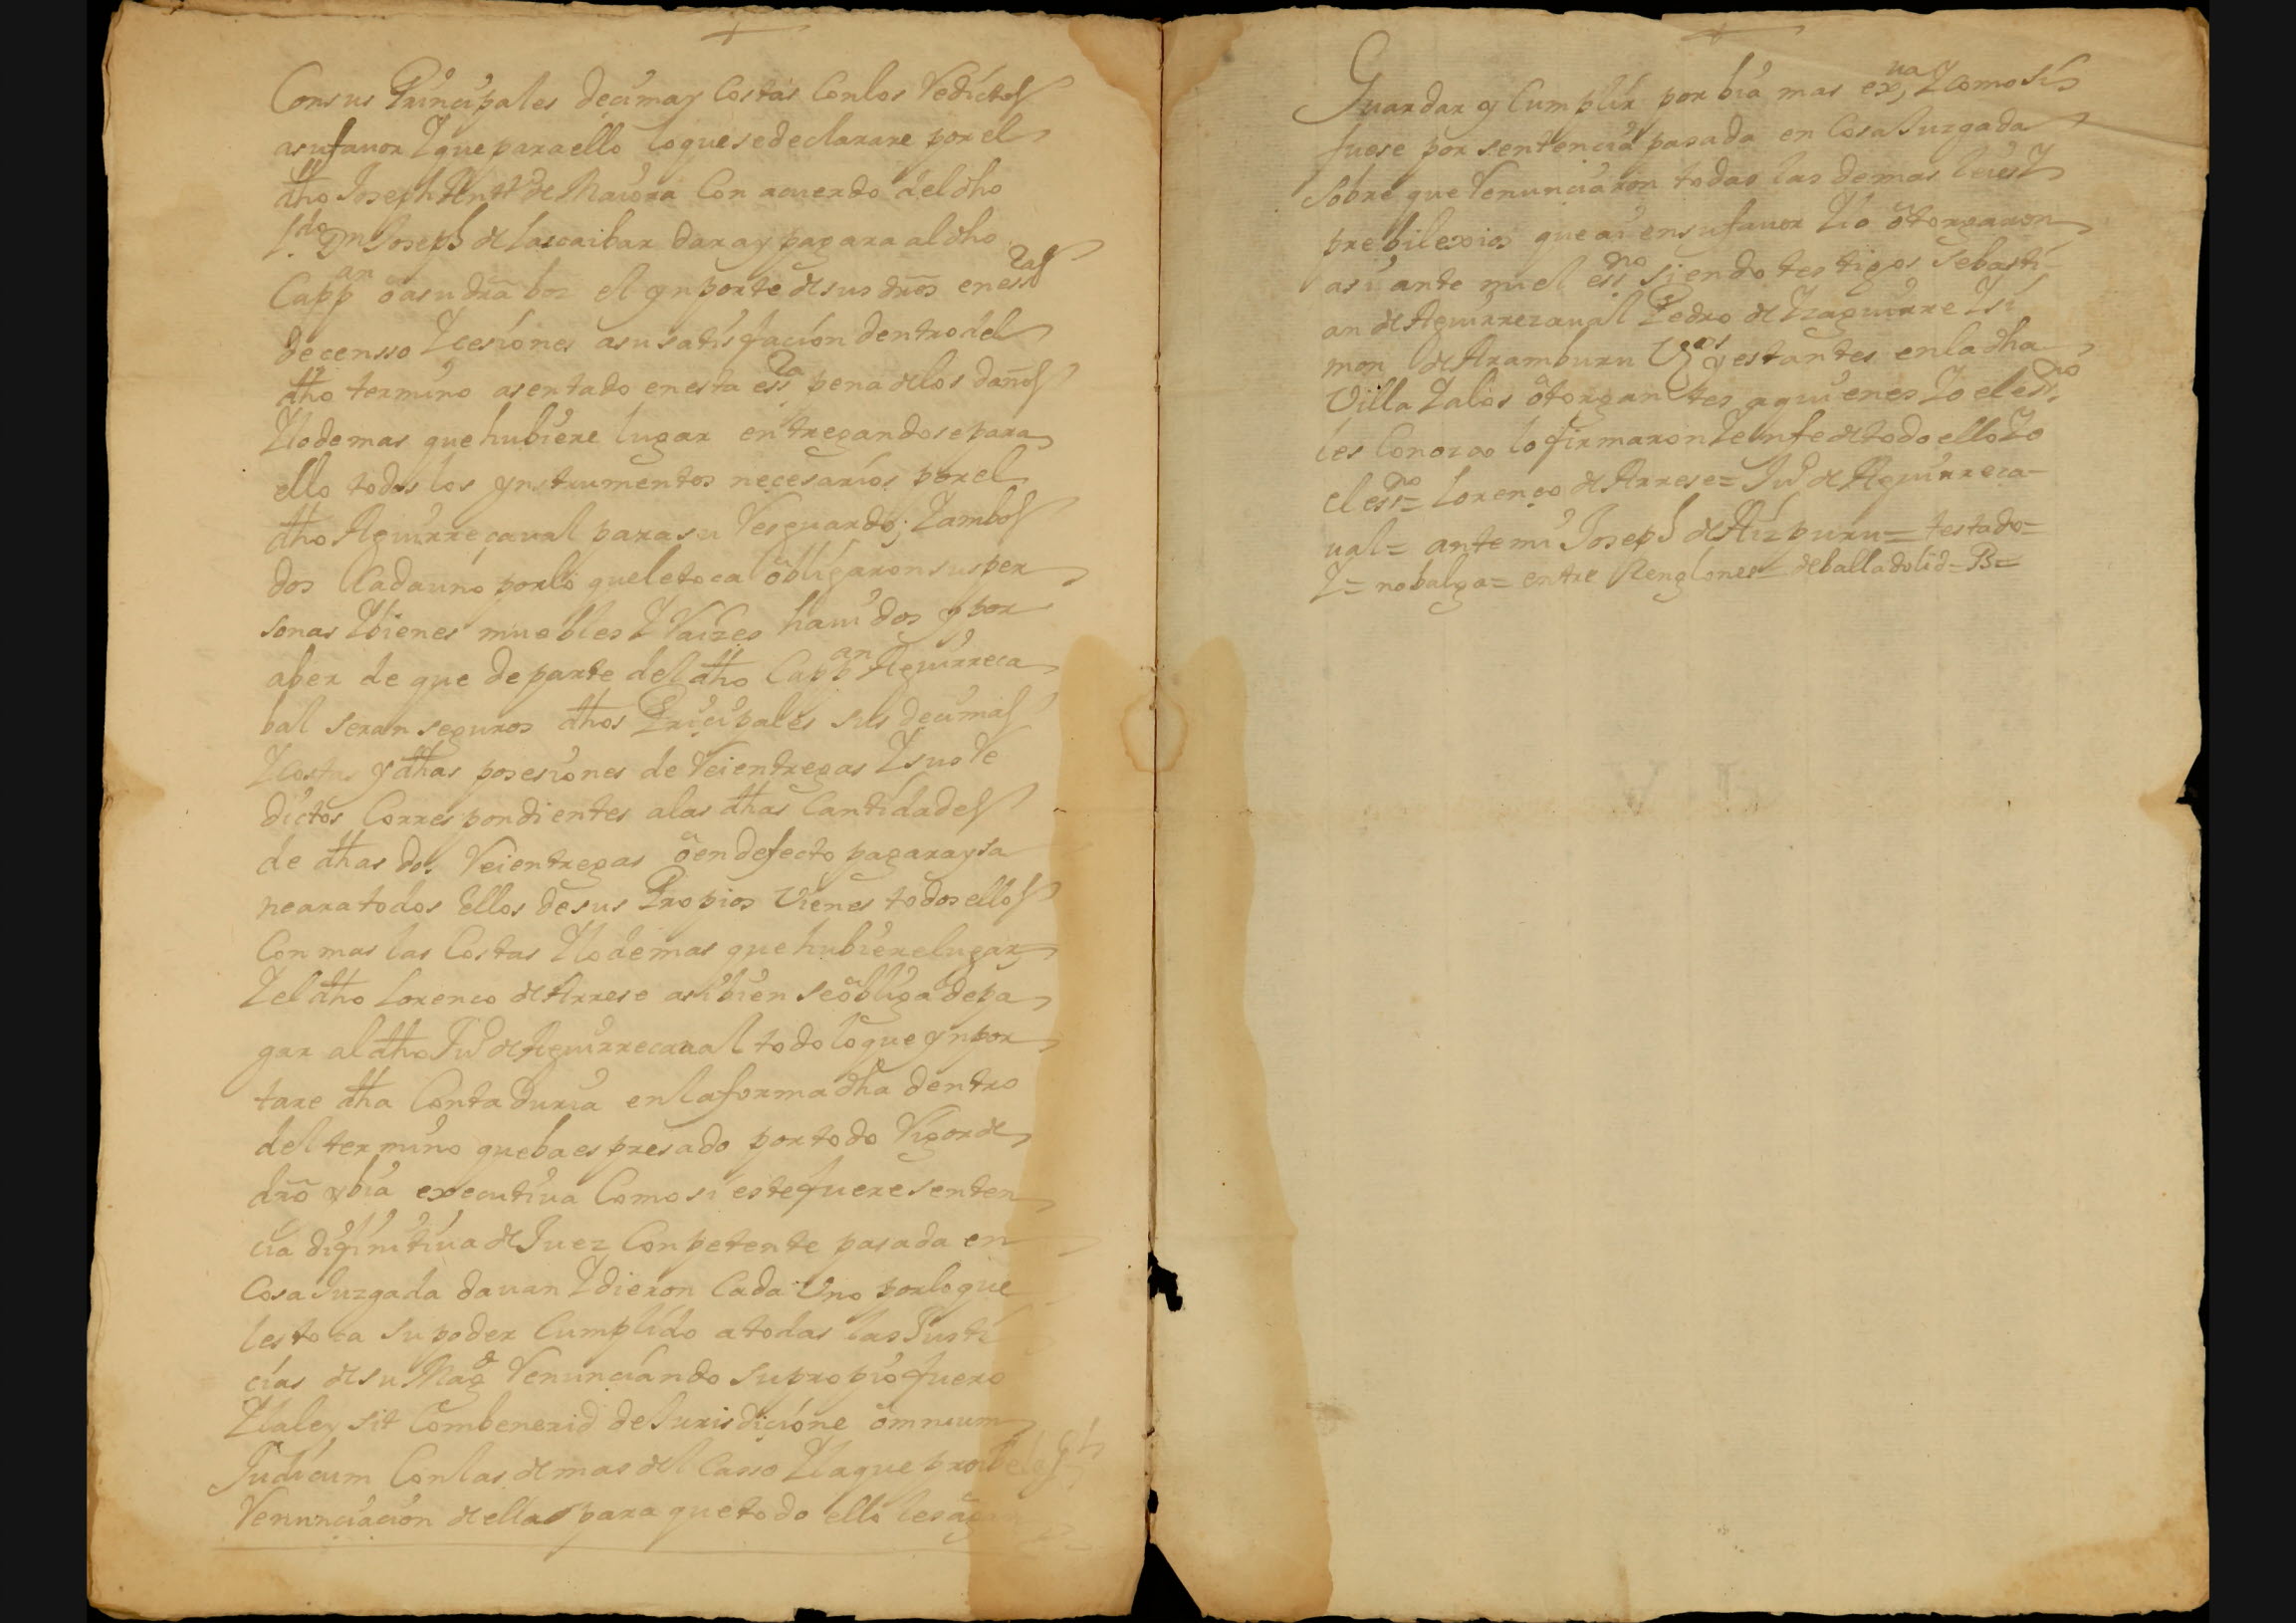 Consus Principales decimay Costas Conlos Redictos
asufauor Y que paraello loquesedeclarare porel
dho Joseph Antt.º de Maiora Con acuerdo deldho
L.do Dn Joseph de Lascaibar daray pagara aldho
Capp.an õasu dra boz el ynporte desus dros eness.ras
decensso Y cesiones asu satisfacion dentrodel
dho termino asentado enesta ess.ra pena delos daños
Ylodemas quehubiere lugar entregandosepara
ello todos los ynstrumentos necesarios porel
dho Aguirreçaual parasu Resguardo; Y ambos
dos Cadauno porlo queletoca õbligaron susper
sonas Y bienes muebles Y Raizes hauidos y por
aber de que departe deldho Capp.an Aguirreca
bal seran seguros dhos Pricipales sus decimas
Y costas y dhas posesiones de Reientregas Y sus Re
dictos Correspondientes alas dhas Cantidades
de dhas dos Reientregas õendefecto pagaraysa
nearatodos Ellos desus Propios Vienes todosellos
Con mas las Costas Ylodemas quehubierelugar
Y eldho Lorenço de Arrese asibien seõbliga depa
gar aldho Ju.º de Aguirrecaual todo loque ynpor
tare dha Contaduria enlaforma dha dentro
deltermino quebaespresado portodo Rigor de
dro y bia executiua Como si estefuere senten
cia difinitiua de Juez Conpetente pasada en
Cosa Juzgada dauan Y dieron Cada Vno porloque
lestoca supoder Cumplido atodas las Justi
cias de su Mag.d Renunciando supropio fuero
Ylaley sit Combenerid de Jurisdicione omnium
Judicum Conlas demas del Casso Y laque proibe las
Renunciacion dellas paraquetodo ello lesagan
Guardar y Cumplir por bia mas ex.ua Y como si
fuese por sentencia pasada en Cosa Juzgada
Sobre que Renunciaron todas las demas leies Y
prebilexios queai ensufauor Y lo õtorgaron
asi ante mi el ess.no siendo testigos Sebasti
an de Aguirrezaual Pedro de Yzaguirre Y Si
mon de Aramburu V.os y estantes enladha
Villa Y alos õtorgantes aquienes Yo eless.no
les Conozco lofirmaron Y enfedetodo ello Yo
el ess.no= Lorenço de Arrese= Ju.º de Aguirreca-
ual= antemi Joseph de Aizpuru= testado=
Y= nobalga= entre Renglones= deballadolid= B=